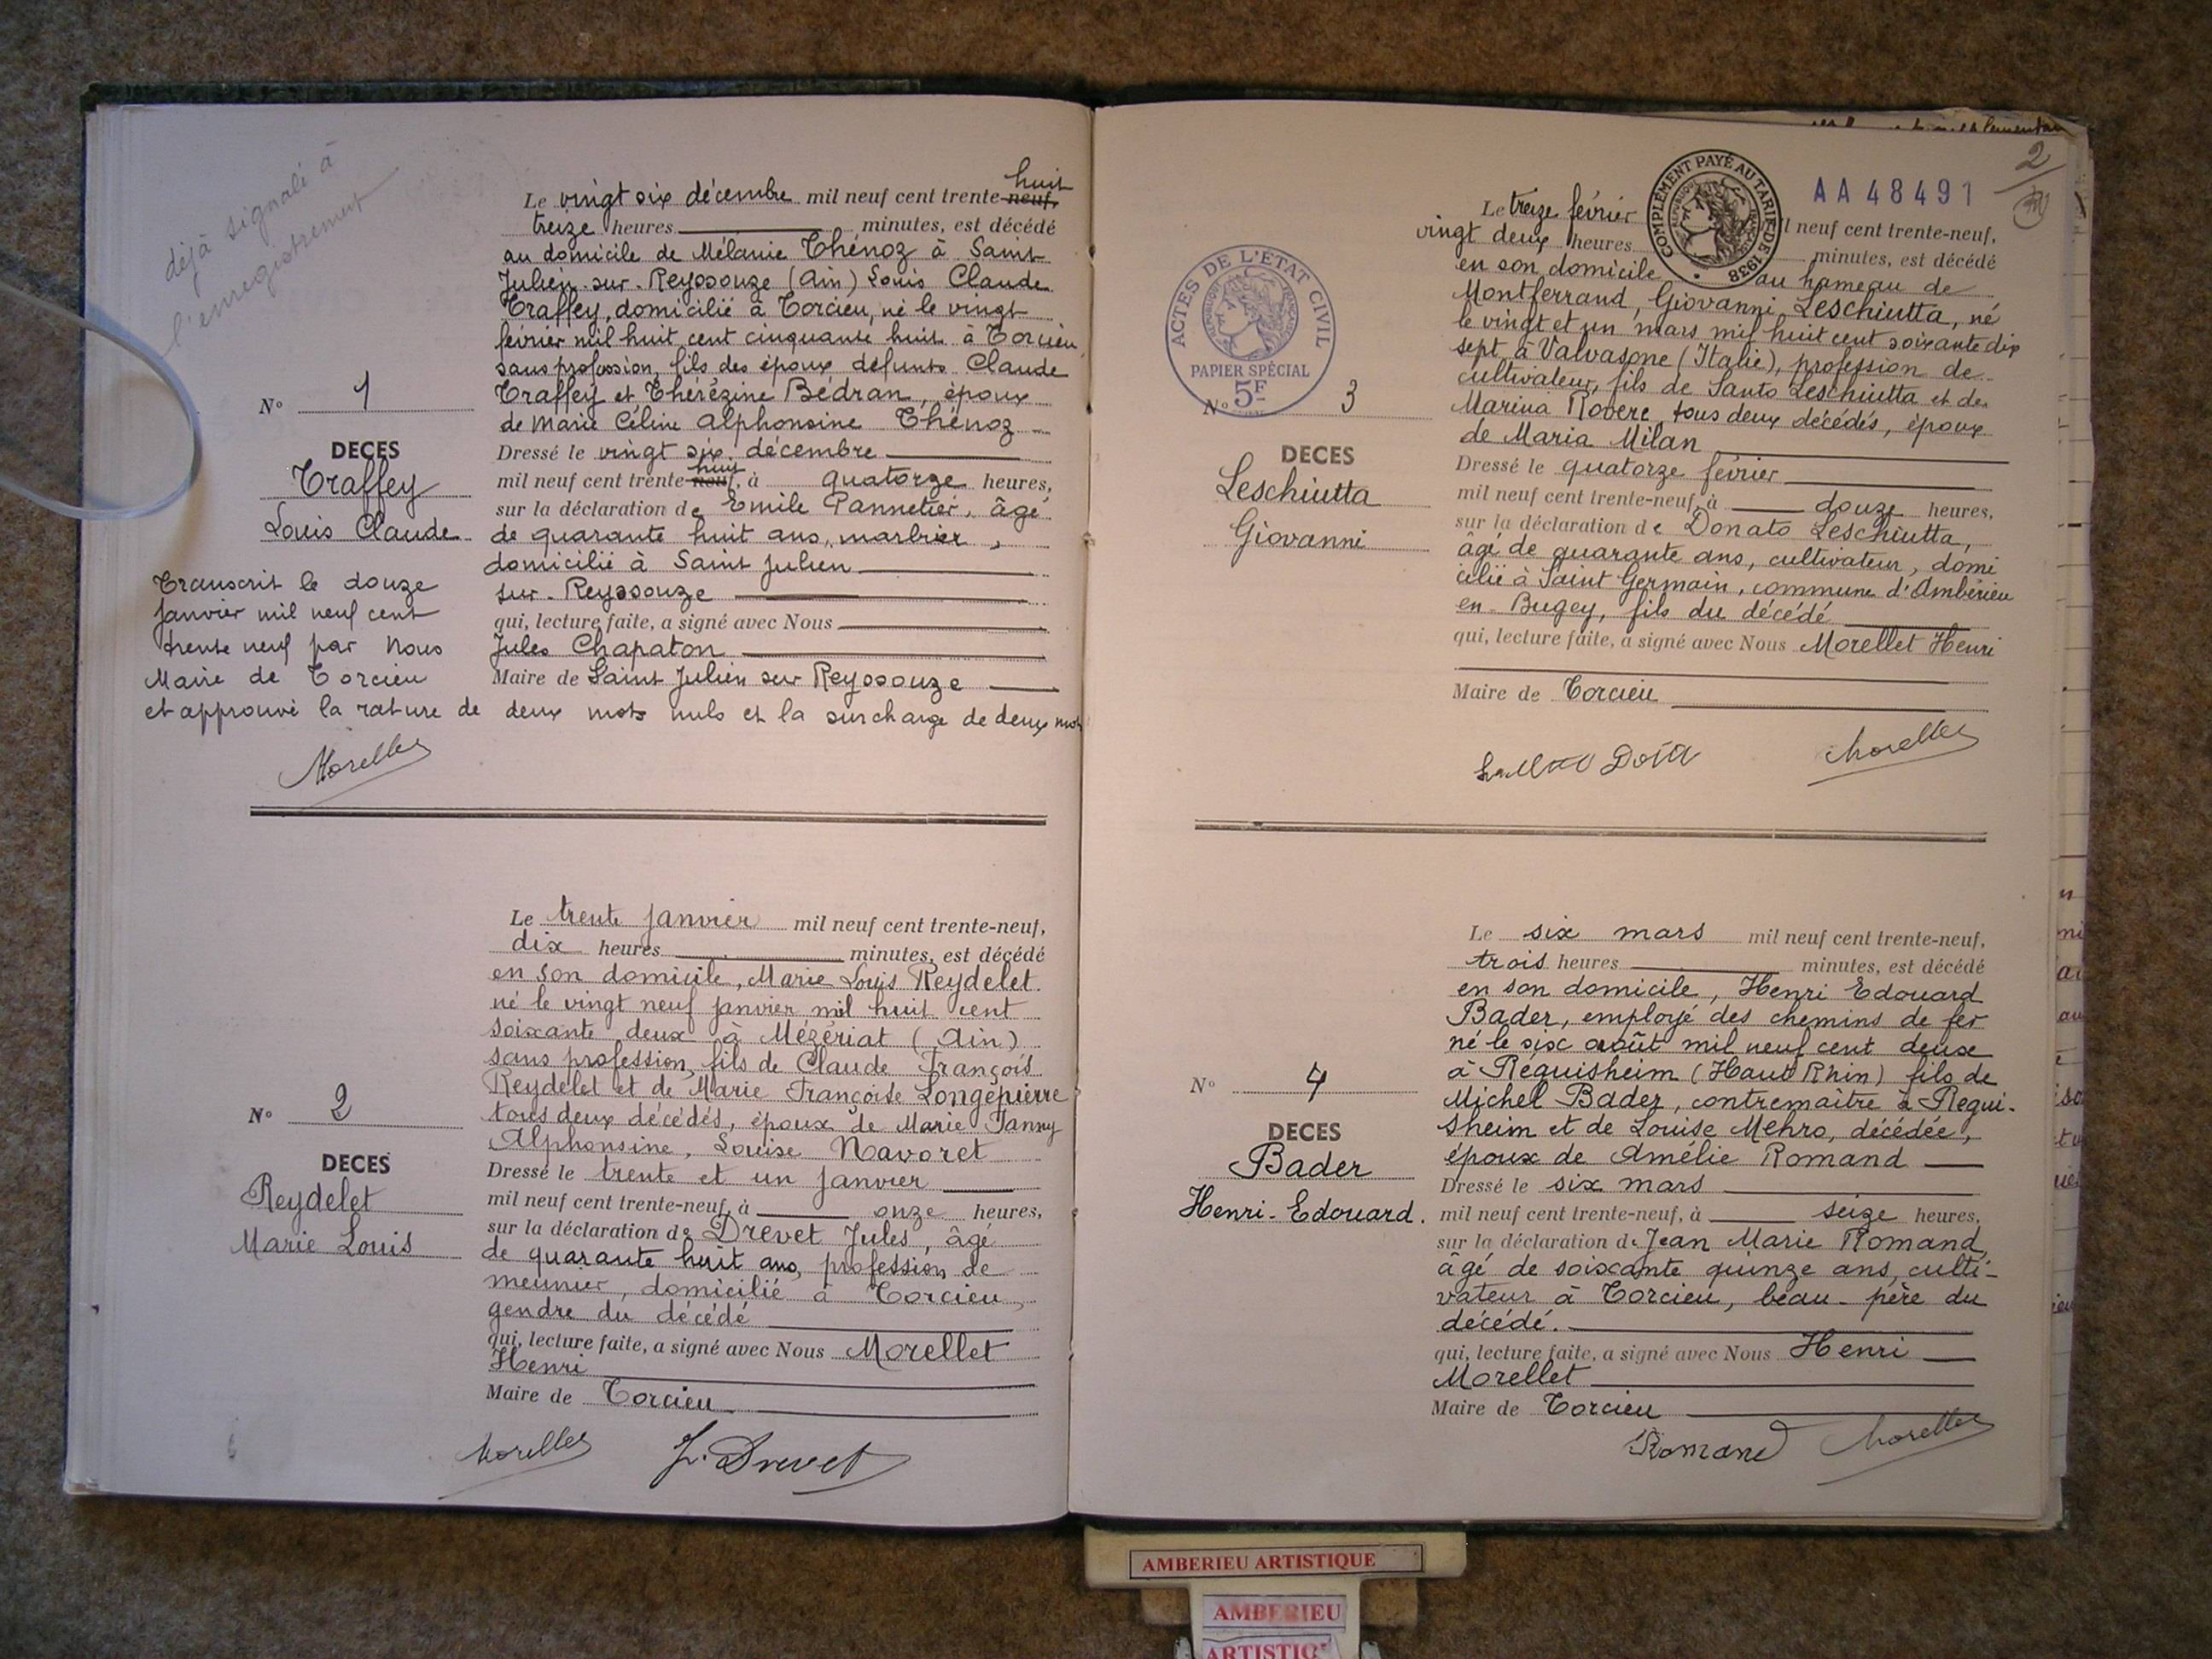 déjà signalé à
l'enregistrement
Le vingt six décembre mil neuf cent trente-neuf, huit
treize heures minutes, est décédé
au domicile de Mélanie Thénoz à Saint
Julien-sur-Reyssouze (Ain) Louis Claude
Traffey, domicilié à Torcieu, né le vingt
février mil huit cent cinquante huit à Torcieu
sans profession, fils des époux défunts Claude
Traffey et Thérézine Bédran, époux
de Marie Céline Alphonsine Thénoz
Dressé le vingt six décembre
mil neuf cent trente-neuf, huit à quatorze heures,
sur la déclaration de Emile Pannetier, âgé
de quarante huit ans, marbrier,
domicilié à Saint Julien
sur-Reyssouze
qui, lecture faite, a signé avec Nous
Jules Chapaton
Maire de Saint Julien sur Reyssouze
N° 1
DECES
Traffey
Louis Claude
Transcrit le douze
janvier mil neuf cent
trente neuf par Nous
Maire de Torcieu
et approuvé la rature de deux mots nuls et la surcharge de deux mots
Morellet
Le trente janvier mil neuf cent trente-neuf,
dix heures minutes, est décédé
en son domicile, Marie Louis Reydelet
né le vingt neuf janvier mil huit cent
soixante deux à Mézériat (Ain)
sans profession, fils de Claude François
Reydelet et de Marie Françoise Longepierre
tous deux décédés, époux de Marie Fanny
Alphonsine, Louise Navoret
Dressé le trente et un janvier
mil neuf cent trente-neuf, à onze heures,
sur la déclaration de Drevet Jules, âgé
de quarante huit ans, profession de
meunier, domicilié à Torcieu,
gendre du décédé
qui, lecture faite, a signé avec Nous Morellet
Henri
Maire de Torcieu
N° 2
DECES
Reydelet
Marie Louis
Morellet J. Drevet
2
AA 48491
COMPLÉMENT PAYÉ AU TARIF DE 1938
ACTES DE L'ÉTAT CIVIL
PAPIER SPÉCIAL
5F
Le treize février mil neuf cent trente-neuf,
vingt deux heures minutes, est décédé
en son domicile au hameau de
Montferrand, Giovanni Leschiutta, né
le vingt et un mars mil huit cent soixante dix
sept à Valvasone (Italie), profession de
cultivateur, fils de Santo Leschiutta et de
Marina Rovere, tous deux décédés, époux
de Maria Milan
Dressé le quatorze février
mil neuf cent trente-neuf, à douze heures,
sur la déclaration de Donato Leschiutta,
âgé de quarante ans, cultivateur, domi
cilié à Saint Germain, commune d'Ambérieu
en-Bugey, fils du décédé
qui, lecture faite, a signé avec Nous Morellet Henri
Maire de Torcieu
N° 3
DECES
Leschiutta
Giovanni
Morellet
Le six mars mil neuf cent trente-neuf,
trois heures minutes, est décédé
en son domicile, Henri Edouard
Bader, employé des chemins de fer
né le six août mil neuf cent deux
à Réguisheim (Haut Rhin) fils de
Michel Bader, contremaître à Régui-
sheim et de Louise Mehro, décédée,
époux de Amélie Romand
Dressé le six mars
mil neuf cent trente-neuf, à seize heures,
sur la déclaration de Jean Marie Romand,
âgé de soixante quinze ans, culti-
vateur à Torcieu, beau-père du
décédé.
qui, lecture faite, a signé avec Nous Henri
Morellet
Maire de Torcieu
N° 4
DECES
Bader
Henri-Edouard.
Romand Morellet
AMBERIEU ARTISTIQUE
AMBERIEU
ARTISTIQUE